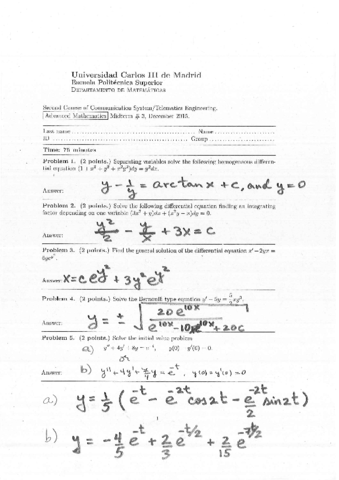 Universidad Carlos III de Madrid
Escuela Politécnica Superior
Departamento de Matemáticas
Second Course of Communication System/Telematics Engineering.
Advanced Mathematics Midterm # 2, December 2015.
Last name Name
ID Group
Time: 75 minutes
Problem 1. (2 points.) Separating variables solve the following homogeneous differen-
tial equation (1 + x² + y² + x²y²)dy = y²dx.
Answer: y - 1/y = arctan x + c, and y = 0
Problem 2. (2 points.) Solve the following differential equation finding an integrating
factor depending on one variable (3x² + y)dx + (x²y − x)dy = 0.
Answer: y²/2 - y/x + 3x = c
Problem 3. (2 points.) Find the general solution of the differential equation
Answer: x = c e^y² + 3y² e^y²
Problem 4. (2 points.) Solve the Bernoulli type equation
Answer: y = ± √(20e^10x / (e^10x - 10x e^10x + 20c))
Problem 5. (2 points.) Solve the initial value problem
a) y(0) y'(0) = 0.
or
Answer: b) y'' + 4y' + y = e^-t, y(0) = y'(0) = 0
a) y = 1/5 (e^-t - e^-2t cos 2t - e^-2t/2 sin 2t)
b) y = -4/5 e^-t + 2/3 e^-t/2 + 2/15 e^-7t/2